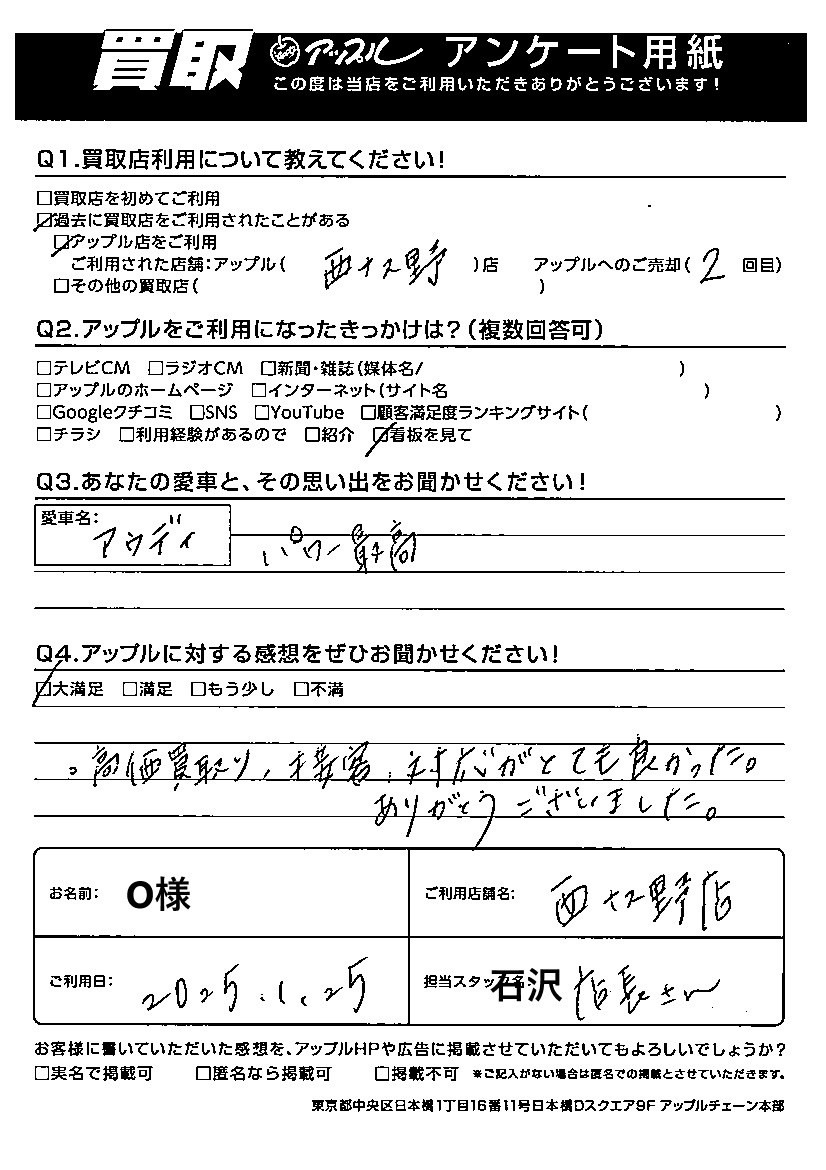 買取 アップル アンケート用紙
この度は当店をご利用いただきありがとうございます!
Q1.買取店利用について教えてください!
□買取店を初めてご利用
☑過去に買取店をご利用されたことがある
☑アップル店をご利用
ご利用された店舗:アップル( 西大和野 )店 アップルへのご売却( 2 回目)
□その他の買取店( )
Q2.アップルをご利用になったきっかけは?(複数回答可)
□テレビCM □ラジオCM □新聞・雑誌(媒体名/ )
□アップルのホームページ □インターネット(サイト名 )
□Googleクチコミ □SNS □YouTube □顧客満足度ランキングサイト( )
□チラシ □利用経験があるので □紹介 ☑看板を見て
Q3.あなたの愛車と、その思い出をお聞かせください!
愛車名:
アウディ パワー最高
Q4.アップルに対する感想をぜひお聞かせください!
☑大満足 □満足 □もう少し □不満
。高価買取り、接客、対応がとても良かった。
ありがとうございました。
お名前: O様 ご利用店舗名: 店
ご利用日: 2025.1.25 担当スタッフ名: 石沢 店長さん
お客様に書いていただいた感想を、アップルHPや広告に掲載させていただいてもよろしいでしょうか?
□実名で掲載可 □匿名なら掲載可 □掲載不可 ※ご記入がない場合は匿名での掲載とさせていただきます。
東京都中央区日本橋1丁目16番11号日本橋Dスクエア9F アップルチェーン本部